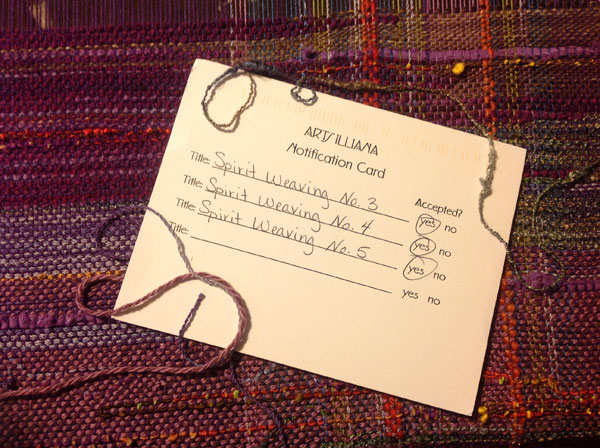 ARTS ILLIANA
Notification Card
Accepted?
Title: Spirit Weaving No. 3 yes no
Title: Spirit Weaving No. 4 yes no
Title: Spirit Weaving No. 5 yes no
Title: yes no